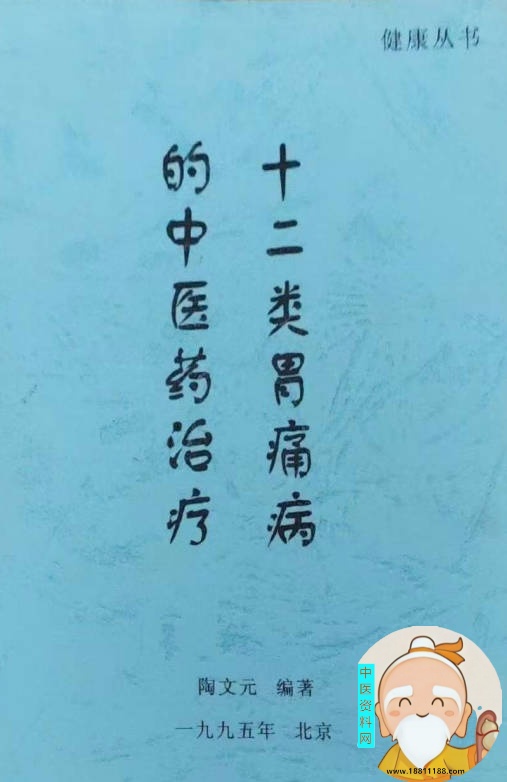 健康丛书
十二类胃痛病
的中医药治疗
陶文元 编著
一九九五年 北京
中医资料网
www.18811188.com